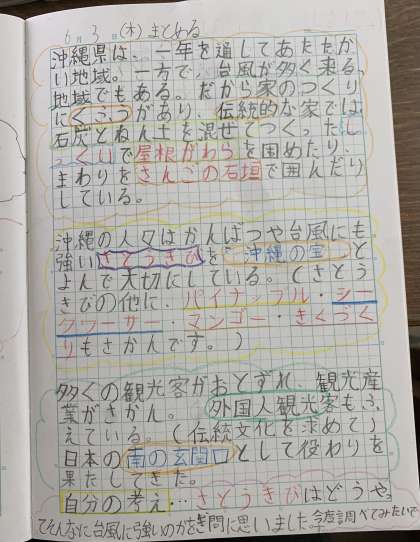 6月3日(木)まとめる
沖縄県は、一年を通してあたたか
い地域。一方で、台風が多く来る
地域でもある。だから家のつくり
にくふうがあり、伝統的な家では
石灰とねん土を混ぜてつくったし
っくいで屋根がわらを固めたり、
まわりをさんごの石垣で囲んだり
している。
沖縄の人々はかんばつや台風にも
強いさとうきびを「沖縄の宝」と
よんで大切にしている。(さとう
きびの他に、パイナップル・シー
クワーサー・マンゴー・きくづく
りもさかんです。)
多くの観光客がおとずれ、観光産
業がさかん。外国人観光客もふ
えている。(伝統文化を求めて)
日本の南の玄関口として役わりを
果たしてきた。
自分の考え…さとうきびはどうや
てそんなに台風に強いのかを疑問に思いました。今度調べてみたいで